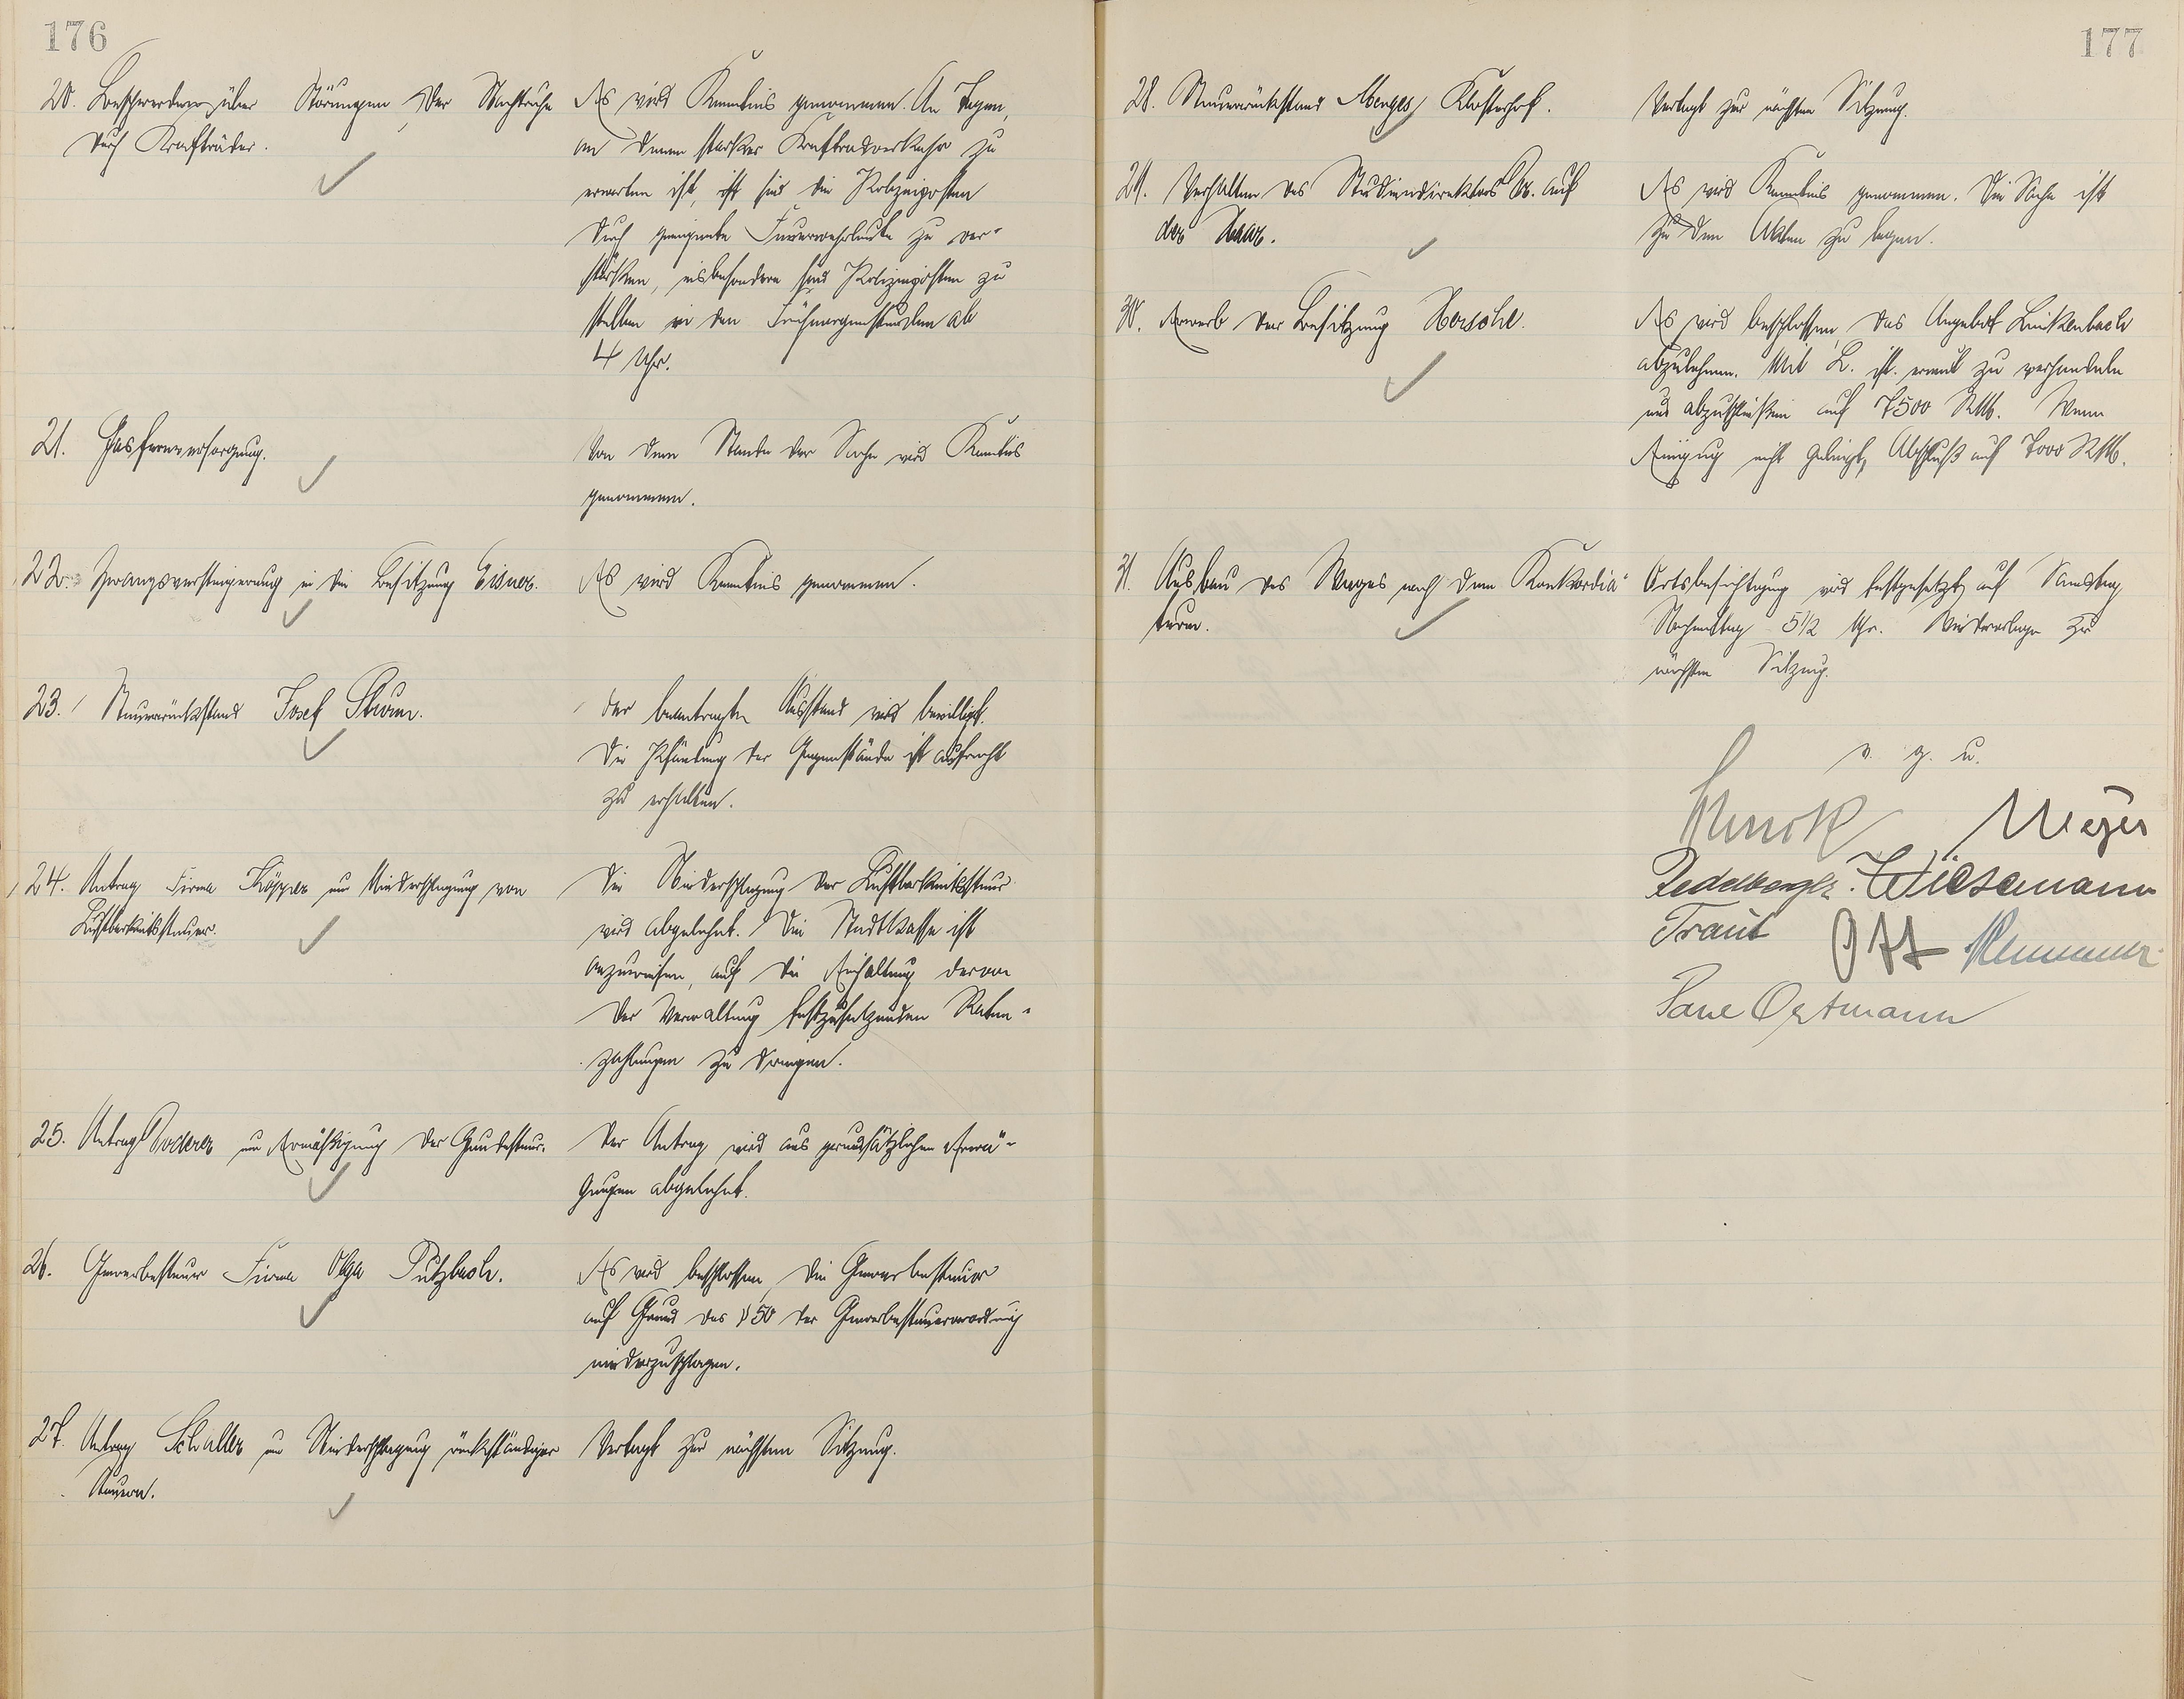 176
20. Beschwerden über Störungen der Nachtruhe
durch Krafträder.
Es wird Kenntnis genommen. An Tagen,
an denen starker Kraftradverkehr zu
erwarten ist, ist sind die Polizeiposten
durch geeignete Feuerwehrleute zu ver-
stärken, insbesondere sind Polizeiposten zu
stellen in den Frühmorgenstunden ab
4 Uhr.
21. Gasfernversorgung.
Von dem Stande der Sache wird Kenntnis
genommen.
22. Zwangsversteigerung in die Besitzung Eisner.
Es wird Kenntnis genommen.
23. Steuerrückstand Josef Sturm.
Der beantragte Ausstand wird bewilligt.
Die Pfändung der Gegenstände ist aufrecht
zu erhalten.
24. Antrag Firma Köpper um Niederschlagung von
Lustbarkeitssteuer.
Die Niederschlagung der Lustbarkeitssteuer
wird abgelehnt. Die Stadtkasse ist
anzuweisen, auf die Einhaltung der von
der Verwaltung festzusetzenden Raten-
zahlungen zu dringen.
25. Antrag um Ermäßigung der Hundesteuer.
Der Antrag wird aus grundsätzlichen Erwä-
gungen abgelehnt.
26. Gewerbesteuer Firma Olga Pützbach.
Es wird beschlossen, die Gewerbesteuer
auf Grund des § 50 der Gewerbesteuerverordnung
niederzuschlagen.
27. Antrag Schaller um Niederschlagung rückständiger
Steuern.
Vertagt zur nächsten Sitzung.
177
28. Steuerrückstand Menges, Klosterhof.
Vertagt zur nächsten Sitzung.
29. Verhalten des Studiendirektors Dr. auf
der
Es wird Kenntnis genommen. Die Sache ist
zu den Akten zu legen.
30. Erwerb der Besitzung Hersche.
Es wird beschlossen, das Angebot Linkenbach
abzulehnen. Mit L. ist erneut zu verhandeln
und abzuschließen auf 7500 RM. Wenn
Einigung nicht gelingt, Abschluß auf 7000 RM.
31. Ausbau des Weges nach dem Konkordia-
turm.
Ortsbesichtigung wird festgesetzt auf Samstag
Nachmittag 5 1/2 Uhr. Wiedervorlage zur
nächsten Sitzung.
v. g. u.
Meyer
Wiesemann
Traut Ott
Oertmann